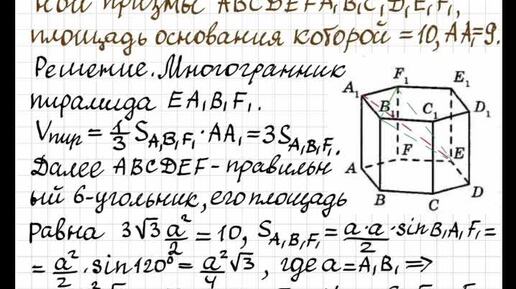 ной призмы ABCDEFA₁B₁C₁D₁E₁F₁,
площадь основания которой =10, AA₁=9.
Решение. Многогранник
пирамида EA₁B₁F₁.
Vпир = 1/3 S_A₁B₁F₁ · AA₁ = 3S_A₁B₁F₁.
Далее ABCDEF - правильн
ый 6-угольник, его площадь
равна 3√3 a²/2 = 10, S_A₁B₁F₁ = a·a/2 · sin B₁A₁F₁ =
= a²/2 · sin120° = a²√3/4, где a = A₁B₁ ⇒
F₁
E₁
A₁
B₁
C₁
D₁
F
E
A
B
C
D